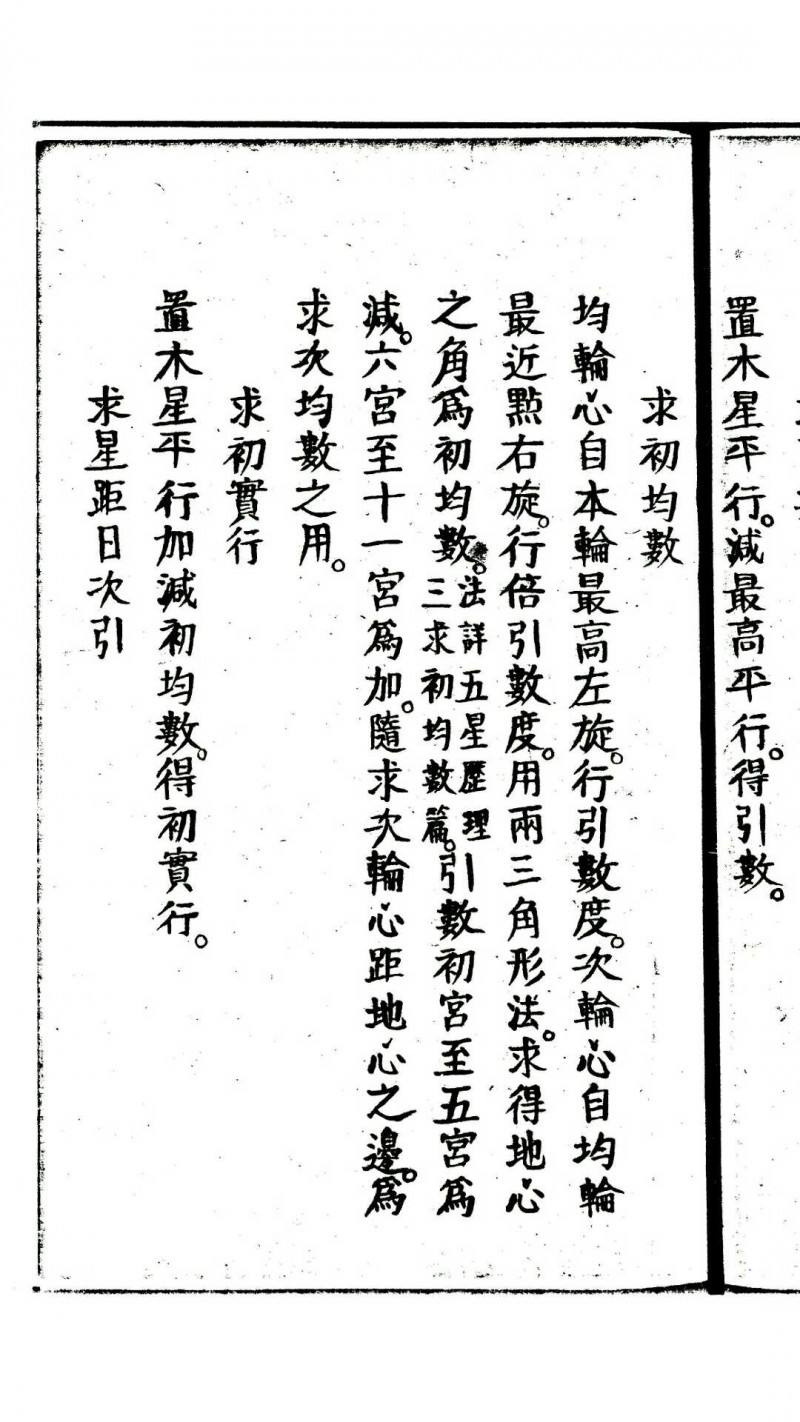 置木星平行。減最高平行。得引數。
求初均數
均輪心自本輪最高左旋。行引數度。次輪心自均輪
最近點右旋。行倍引數度。用兩三角形法。求得地心
之角爲初均數。法詳五星歷理三求初均數篇。引數初宮至五宮爲
減。六宮至十一宮爲加。隨求次輪心距地心之邊。爲
求次均數之用。
求初實行
置木星平行加減初均數。得初實行。
求星距日次引